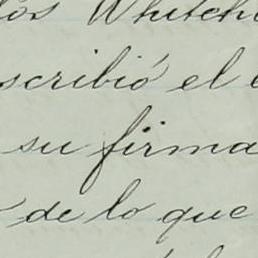 los Whitch
scribió el
su firma
de lo que